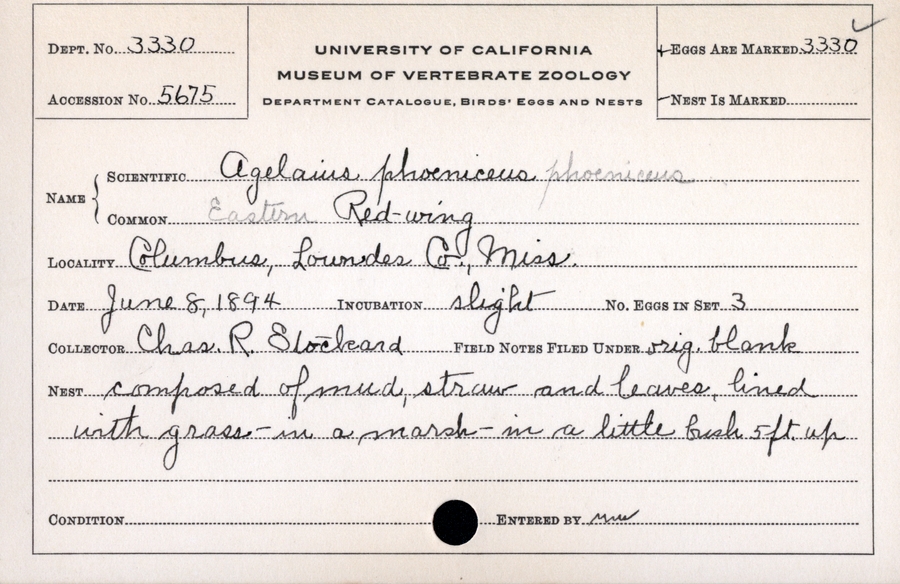 DEPT. NO. 3330
UNIVERSITY OF CALIFORNIA
MUSEUM OF VERTEBRATE ZOOLOGY
DEPARTMENT CATALOGUE, BIRDS' EGGS AND NESTS
EGGS ARE MARKED 3330
ACCESSION NO. 5675
NEST IS MARKED
NAME
SCIENTIFIC Agelaius phoeniceus phoeniceus
COMMON Eastern Red-wing
LOCALITY Columbus, Lowndes Co., Miss.
DATE June 8, 1894 INCUBATION slight NO. EGGS IN SET 3
COLLECTOR Chas. R. Stockard FIELD NOTES FILED UNDER orig. blank
NEST composed of mud, straw and leaves, lined
with grass - in a marsh - in a little bush 5ft. up
CONDITION ENTERED BY